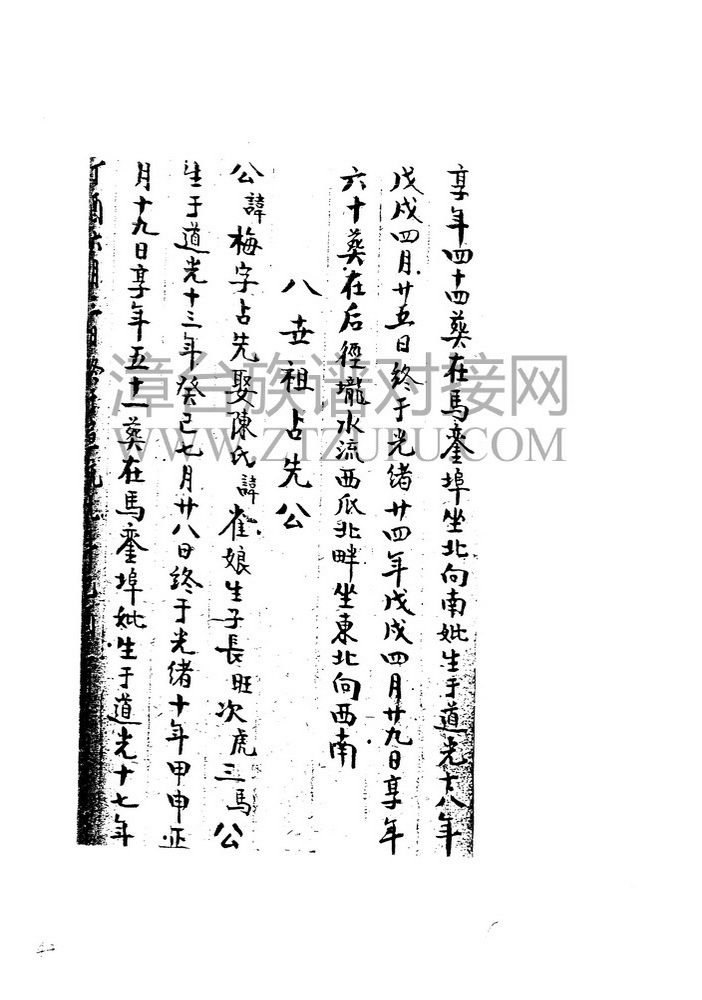 享年四十四葬在馬銮埠坐北向南妣生于道光十八年
戊戌四月廿五日終于光绪廿四年戊戌四月廿九日享年
六十葬在后徑壠水流西瓜北畔坐東北向西南
八世祖占先公
公諱梅字占先娶陳氏諱雀娘生子長旺次虎三馬公
生于道光十三年癸巳七月廿八日終于光绪十年甲申正
月十九日享年五十一葬在馬銮埠妣生于道光十七年
漳台族谱对接网
WWW.ZTZUPU.COM